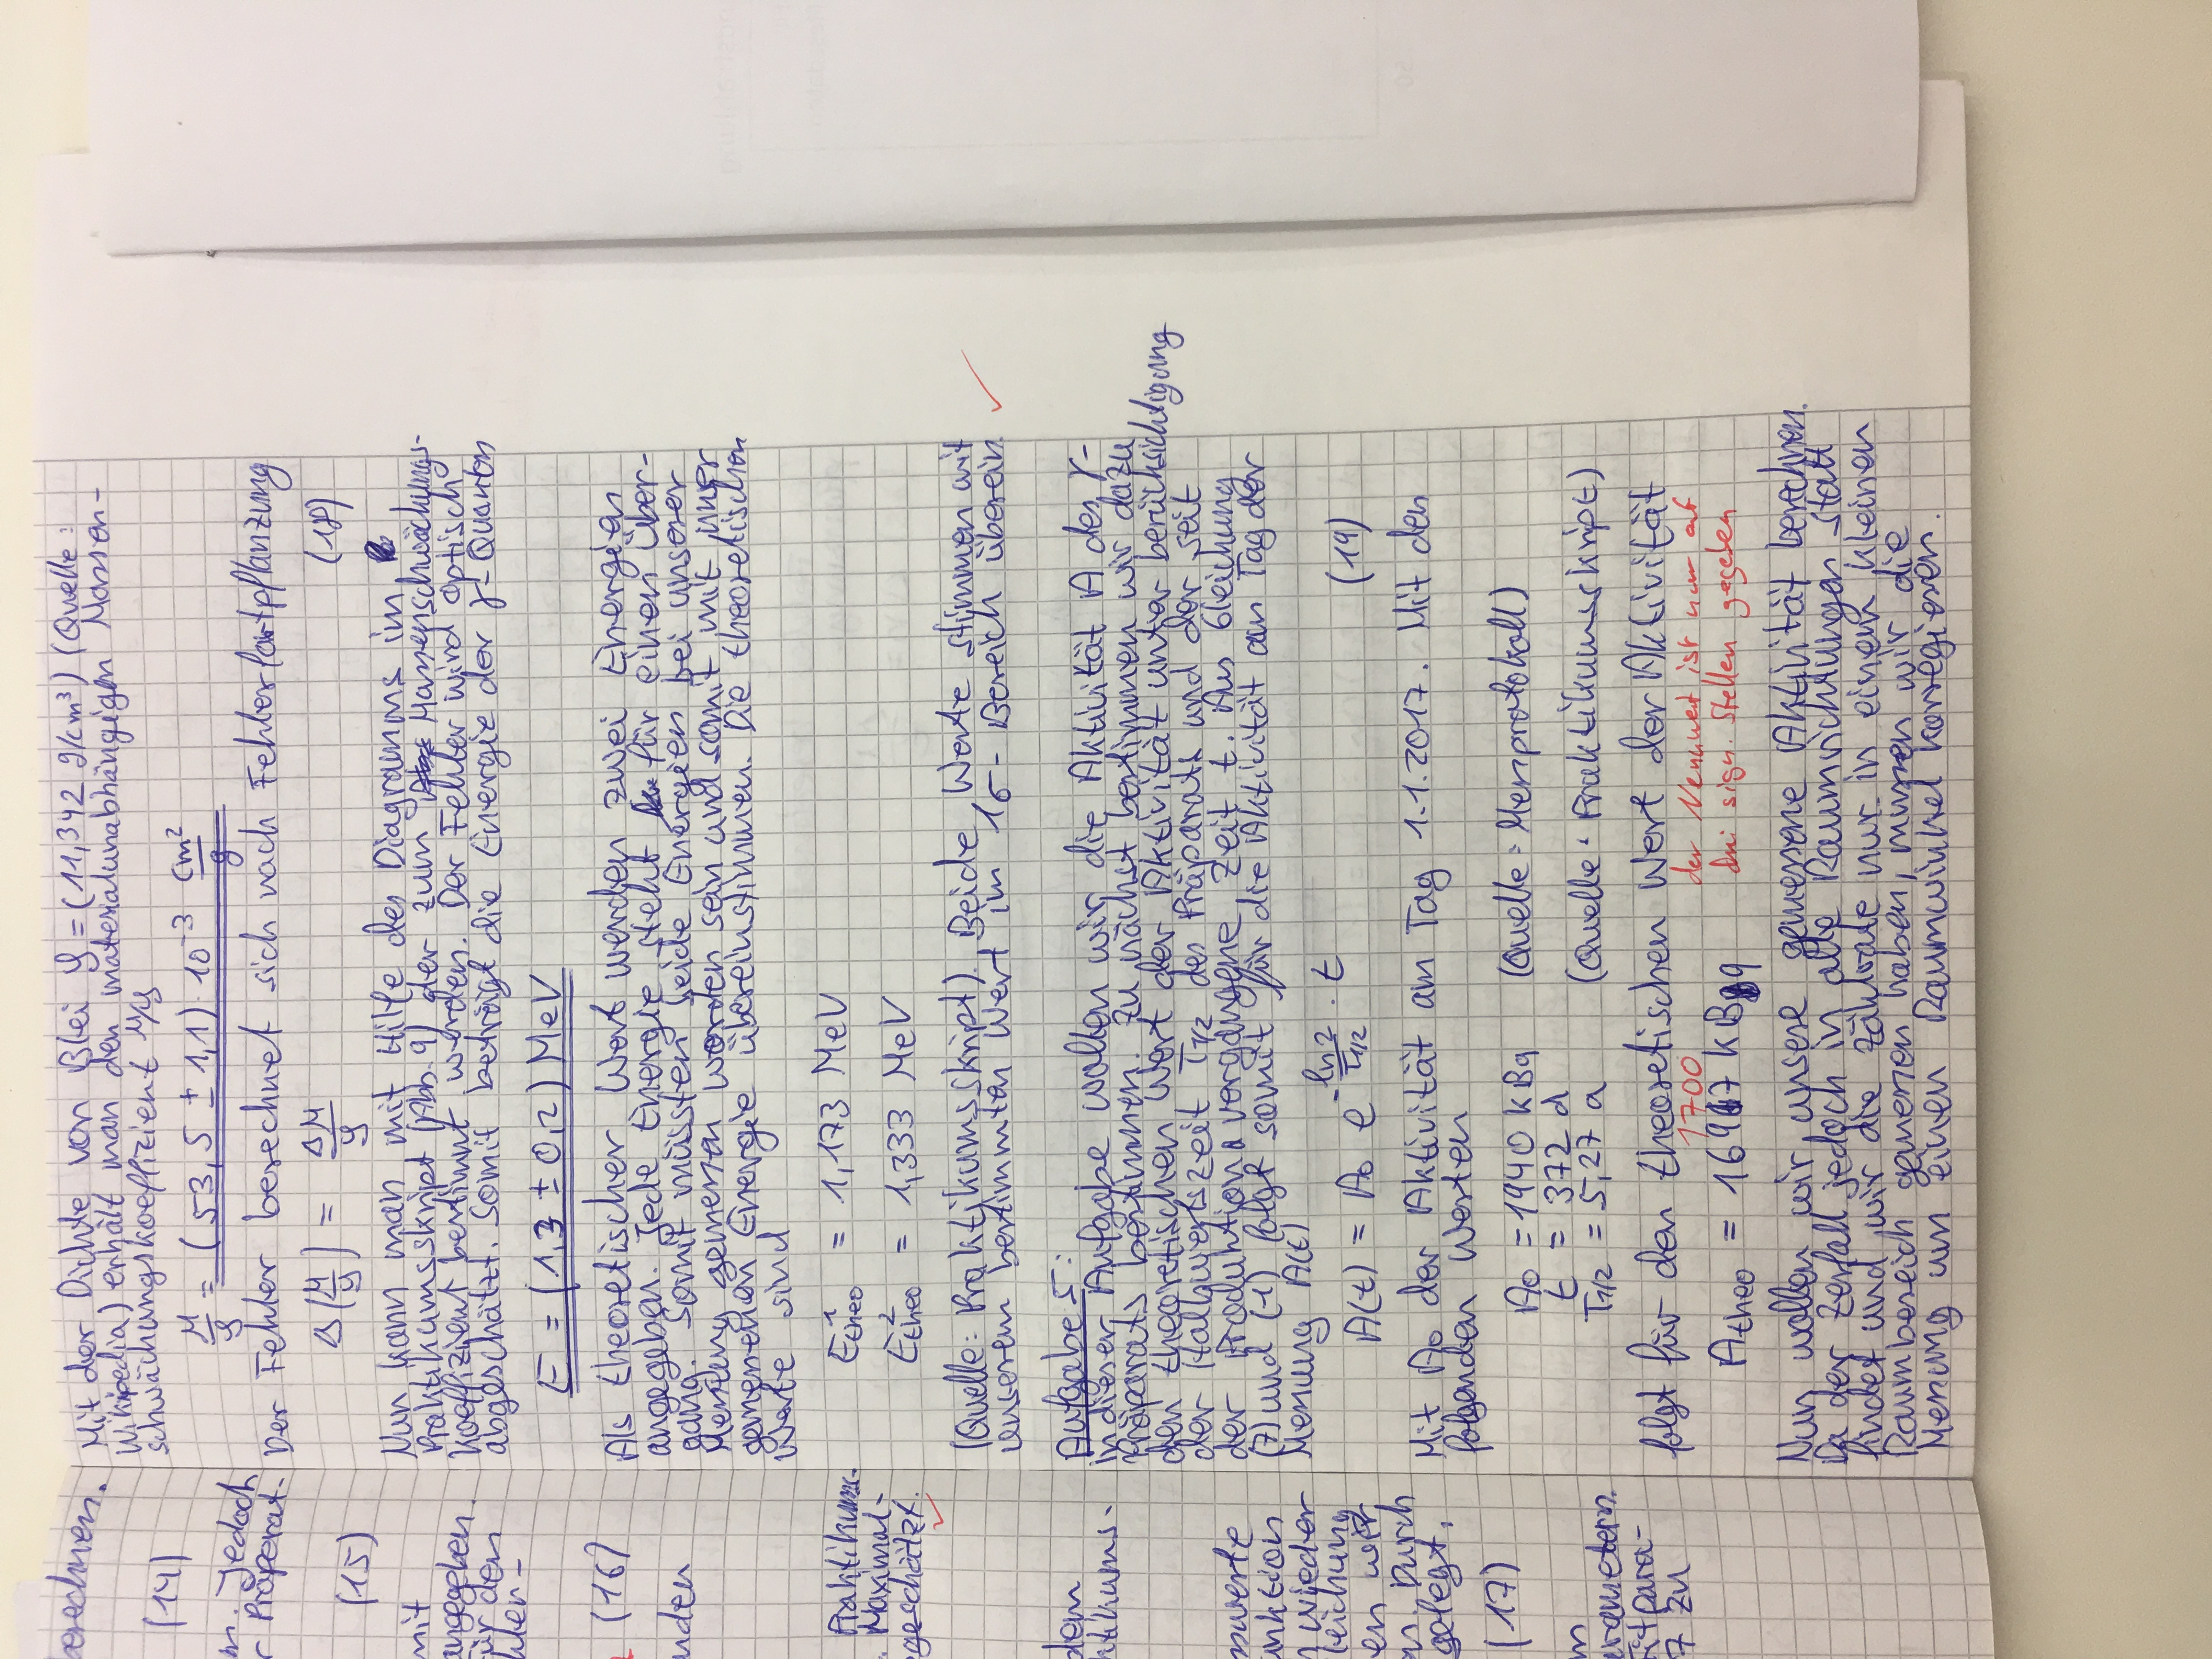 berechnen.
(14)
m. Jedoch
r Präperat-
(15)
mit
angegeben.
für den
hler-
(16)
nden
Praktikums-
. Maximal-
geschätzt.
dem
ktikums-
sswerte
unktion
n wieder
leichung
en wir
n. Durch
gelegt,
(17)
m
arametern.
Fitpara-
7 zu
Mit der Dichte von Blei ρ = (11,342 g/cm³) (Quelle:
Wikipedia) erhält man den materialunabhängigen Massen-
schwächungskoeffizient μ/ρ
μ/ρ = (53,5 ± 1,1) · 10⁻³ cm²/g
Der Fehler berechnet sich nach Fehlerfortpflanzung
Δ(μ/ρ) = Δμ/ρ (18)
Nun kann man mit Hilfe des Diagramms im
Praktikumsskript (Abb. 9) der zum Massenschwächungs-
koeffizient bestimmt werden. Der Fehler wird optisch
abgeschätzt. Somit beträgt die Energie der γ-Quanten
E = (1,3 ± 0,2) MeV
Als theoretischer Wert werden zwei Energien
angegeben. Jede Energie steht für einen Über-
gang. Somit müssten beide Energien bei unserer
Messung gemessen worden sein und somit mit unser
gemessenen Energie übereinstimmen. Die theoretischen
Werte sind
E¹theo = 1,173 MeV
E²theo = 1,333 MeV
(Quelle: Praktikumsskript). Beide Werte stimmen mit
unserem bestimmten Wert im 1σ-Bereich überein.
Aufgabe 5:
In dieser Aufgabe wollen wir die Aktivität A des γ-
Präparats bestimmen. Zu nächst bestimmen wir dazu
den theoretischen Wert der Aktivität unter berücksichtigung
der Halbwertszeit T1/2 des Präparats und der seit
der Produktion vergangene Zeit t. Aus Gleichung
(7) und (1) folgt somit für die Aktivität am Tag der
Messung A(t)
A(t) = A₀ e^(-ln2/T1/2 · t) (19)
Mit A₀ der Aktivität am Tag 1.1.2017. Mit den
folgenden Werten
A₀ = 1940 kBq (Quelle: Messprotokoll)
t = 372 d
T1/2 = 5,27 a (Quelle: Praktikumsskript)
folgt für den theoretischen Wert der Aktivität
1700 der Nennwert ist nur auf
Atheo = 16917 kBq drei sign. Stellen gegeben
Nun wollen wir unsere gemessene Aktivität berechnen.
Da der Zerfall jedoch in alle Raumrichtungen statt
findet und wir die Zählrate nur in einem kleinen
Raumbereich gemessen haben, müssen wir die
Messung um einen Raumwinkel korregieren.